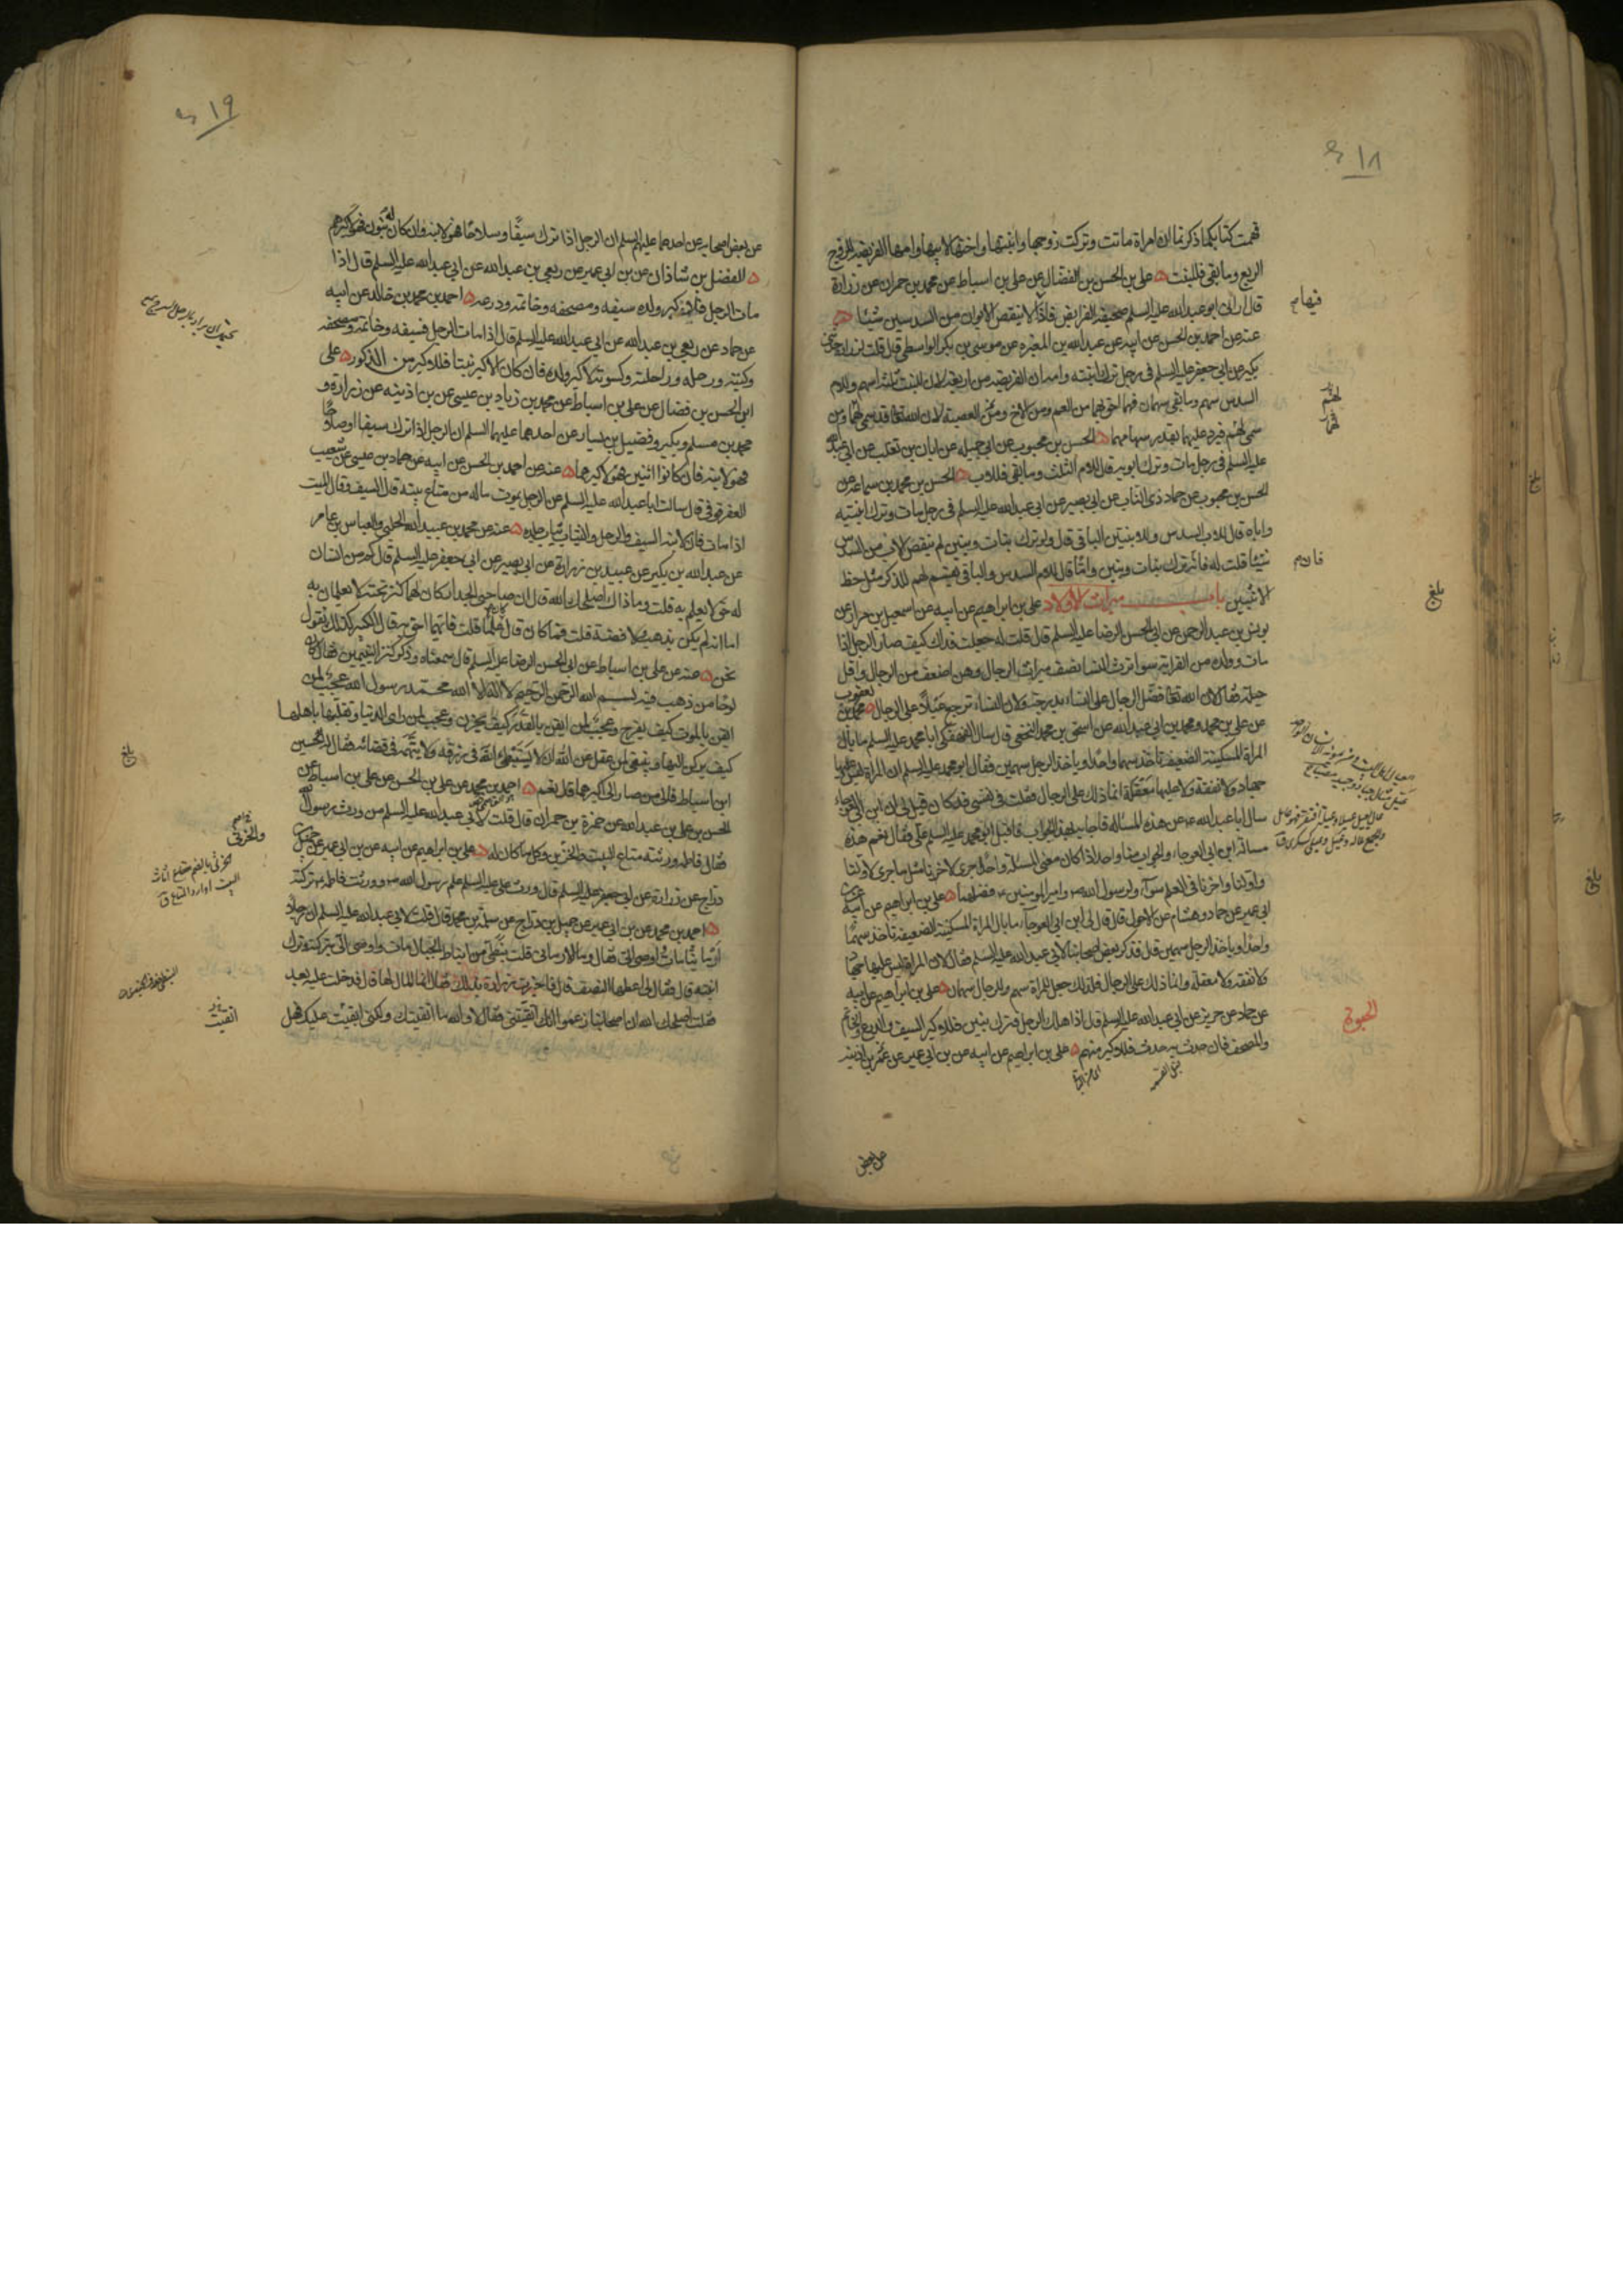 ١٨
فهمت كتابكما ذكرتما ان امراة ماتت وتركت زوجها وابنتها واختها لابيها وامها الفريضة للزوج
الربع وما بقى فللبنت علي بن الحسن بن الفضال عن علي بن اسباط عن محمد بن حمران عن زرارة
قال اراني ابو عبد الله عليه السلم صحيفة الفرايض فاذا لا ينقص الابوان من السدسين شيئا
عنه عن احمد بن الحسن عن ابيه عن عبد الله بن المغيره عن موسى بن بكر الواسطي قال قلت لزرارة حدثني
بكير عن ابي جعفر عليه السلم في رجل ترك ابنته وامه ان الفريضه من اربعة لان للبنت ثلثة اسهم وللام
السدس سهم وما بقى سهمان فهما احق بهما من العم ومن الاخ ومن العصبة لان الله تعالى قد سمى لهما ومن
سمى لهم فيرد عليهما بقدر سهامهما الحسن بن محبوب عن ابي جميله عن ابان بن تغلب عن ابي عبد الله
عليه السلم في رجل مات وترك ابويه قال للام الثلث وما بقى فللاب الحسن بن محمد بن سماعة عن
الحسن بن محبوب عن حماد ذي الناب عن ابي بصير عن ابي عبد الله عليه السلم في رجل مات وترك ابنتيه
واباه قال للاب السدس وللابنتين الباقي قال ولو ترك بنات وبنين لم ينقص الاب من السدس
شيئا قلت له فانه ترك بنات وبنين واما قال للام السدس والباقي يقسم لهم للذكر مثل حظ
الانثيين باب ميراث الاولاد علي بن ابراهيم عن ابيه عن اسمعيل بن مرار عن
يونس بن عبد الرحمن عن ابي الحسن الرضا عليه السلم قال قلت له جعلت فداك كيف صار الرجل اذا
مات وولده من القرابة سوا ترث النسا نصف ميراث الرجال وهن اضعف من الرجال واقل
حيلة فقال لان الله تعالى فضل الرجال على النساء بدرجة ولان النساء ترجع عيالا على الرجال محمد بن يعقوب
عن علي بن محمد ومحمد بن ابي عبد الله عن اسحق بن محمد النخعي قال سال الفهفكي ابا محمد عليه السلم ما بال
المراة المسكينة الضعيفة تاخذ سهما واحدا وياخذ الرجل سهمين فقال ابو محمد عليه السلم ان المراة ليس عليها
جهاد ولا نفقة ولا عليها معقلة انما ذلك على الرجال فقلت في نفسي قد كان قيل لي ان ابن ابي العوجاء
سال ابا عبد الله عن هذه المسالة فاجابه بهذا الجواب فاقبل ابو محمد عليه السلم علي فقال نعم هذه
مسالة ابن ابي العوجاء والجواب منا واحد اذا كان معنى المسئلة واحدا جرى لاخرنا مثل ما جرى لاولنا
واولنا واخرنا في العلم سواء ولرسول الله ص وامير المومنين ع فضلهما علي بن ابراهيم عن ابيه عن ابن
ابي عمير عن حماد وهشام عن الاحول قال قال لي ابن ابي العوجاء ما بال المراة المسكينة الضعيفة تاخذ سهما
واحدا وياخذ الرجل سهمين قال فذكر بعض اصحابنا لابي عبد الله عليه السلم فقال لان المراة ليس عليها جهاد
ولا نفقة ولا معقلة وانما ذلك على الرجال فلذلك جعل للمراة سهم وللرجال سهمان علي بن ابراهيم عن ابيه
عن حماد عن حريز عن ابي عبد الله عليه السلم قال اذا هلك الرجل فترك بنين فللاكبر السيف والدرع والخاتم
والمصحف فان حدث به حدث فللاكبر منهم علي بن ابراهيم عن ابيه عن بن ابي عمير عن عمر بن اذينه
عن بعض
فيهام
لهم
فان م
بلغ
بلغ
الحبوة
١٩
عن بعض اصحابه عن احدهما عليهم السلم ان الرجل اذا ترك سيفا وسلاحا فهو لابنه وان كان له بنون فهو لاكبرهم
الفضل بن شاذان عن بن ابي عمير عن ربعي بن عبد الله عن ابي عبد الله عليه السلم قال اذا
مات الرجل فلاكبر ولده سيفه ومصحفه وخاتمه ودرعه احمد بن محمد بن خالد عن ابيه
عن حماد عن ربعي بن عبد الله عن ابي عبد الله عليه السلم قال اذا مات الرجل فسيفه وخاتمه ومصحفه
وكتبه ورحله وراحلته وكسوته لاكبر ولده فان كان الاكبر بنتا فللاكبر من الذكور علي
ابن الحسن بن فضال عن علي بن اسباط عن محمد بن زياد بن عيسى عن بن اذينه عن زرارة و
محمد بن مسلم وبكير وفضيل بن يسار عن احدهما عليهما السلم ان الرجل اذا ترك سيفا او سلاحا
فهو لابنه فان كانوا اثنين فهو لاكبرهما عنه عن احمد بن الحسن عن ابيه عن حماد بن عيسى عن شعيب
العقرقوفي قال سالت ابا عبد الله عليه السلم عن الرجل يموت ماله من متاع بيته قال السيف وقال الميت
اذا مات فان لابنه السيف والرحل والثياب ثياب جلده عنه عن محمد بن عبيد الله الحلبي والعباس بن عامر
عن عبد الله بن بكير عن عبيد بن زرارة عن ابي بصير عن ابي جعفر عليه السلم قال كم من انسان
له حق لا يعلم به قلت وما ذاك اصلحك الله قال ان صاحبي الجدار كان لهما كنز تحته لا يعلمان به
اما انه لم يكن بذهب ولا فضة قلت فما كان قال علما قلت فايهما احق به قال الاكبر كذلك نقول
نحن عنه عن علي بن اسباط عن ابي الحسن الرضا عليه السلم قال سمعناه وذكر كنز اليتيمين فقال كان
لوحا من ذهب فيه بسم الله الرحمن الرحيم لا اله الا الله محمد رسول الله عجب لمن
ايقن بالموت كيف يفرح وعجب لمن ايقن بالقدر كيف يحزن وعجب لمن راى الدنيا وتقلبها باهلها
كيف يركن اليها وينبغي لمن عقل عن الله ان لا يستبطئ الله في رزقه ولا يتهمه في قضائه فقال له الحسين
ابن اسباط فالى من صار الى اكبرهما قال نعم احمد بن محمد عن علي بن الحسن عن علي بن اسباط عن
الحسن بن علي بن عبد الله عن حمزة بن حمران قال قلت لابي عبد الله عليه السلم من ورث رسول الله
فقال فاطمه ورثته متاع البيت والخرثي وكل ما كان له علي بن ابراهيم عن ابيه عن بن ابي عمير عن جميل بن
دراج عن زرارة عن ابي جعفر عليه السلم قال ورث علي عليه السلم علم رسول الله ص وورثت فاطمه تركته
احمد بن محمد عن بن ابي عمير عن جميل بن دراج عن سلمة بن محرز قال قلت لابي عبد الله عليه السلم ان رجلا
ارمانيا مات واوصى الي فقال وما الارماني قلت نبطي من انباط الجبال مات واوصى الي بتركته وترك
ابنته قال فقال لي اعطها النصف قال فاخبرت زرارة بذلك فقال انما المال لها قال فدخلت عليه بعد
فقلت اصلحك الله ان اصحابنا زعموا انك اتقيتني فقال لا والله ما اتقيتك ولكن ابقيت عليك فهل
بلغ
والخرثي
الخرثي بالضم متاع اثاث
البيت
اتقيت